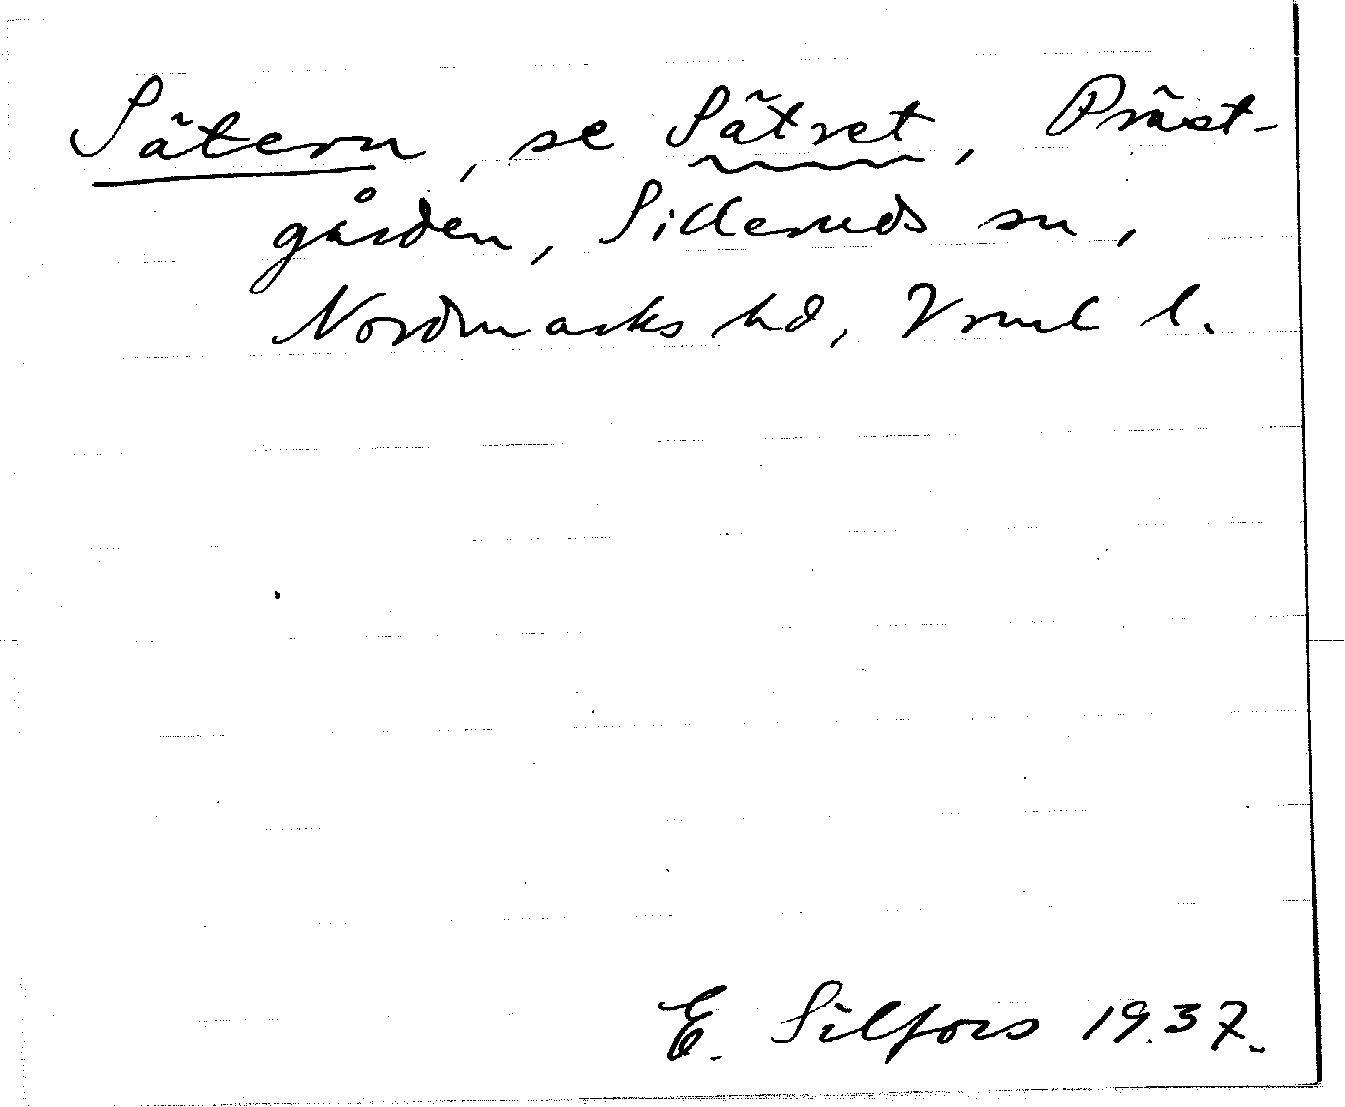 Sätern, se Sätret, Präst-
gården, Silleruds sn,
Nordmarks hd, Vrml l.
E. Silfors 1937.